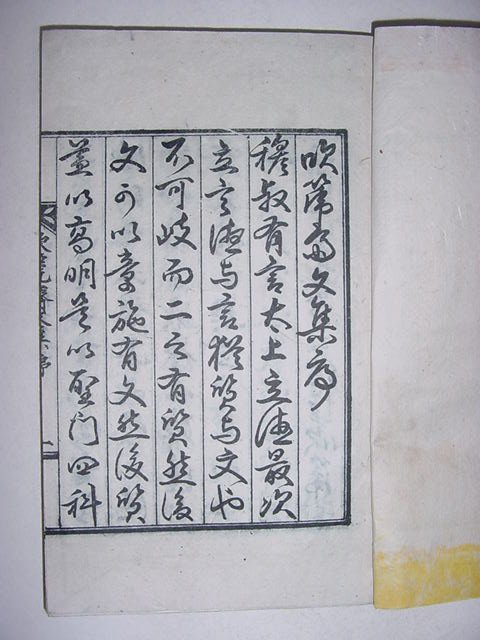 吹篪齋文集序
穆叔有言太上立德最次
立言德与言猶質与文也
不可歧而二之有質然後
文可以章施有文然後質
益以高明是以聖门四科